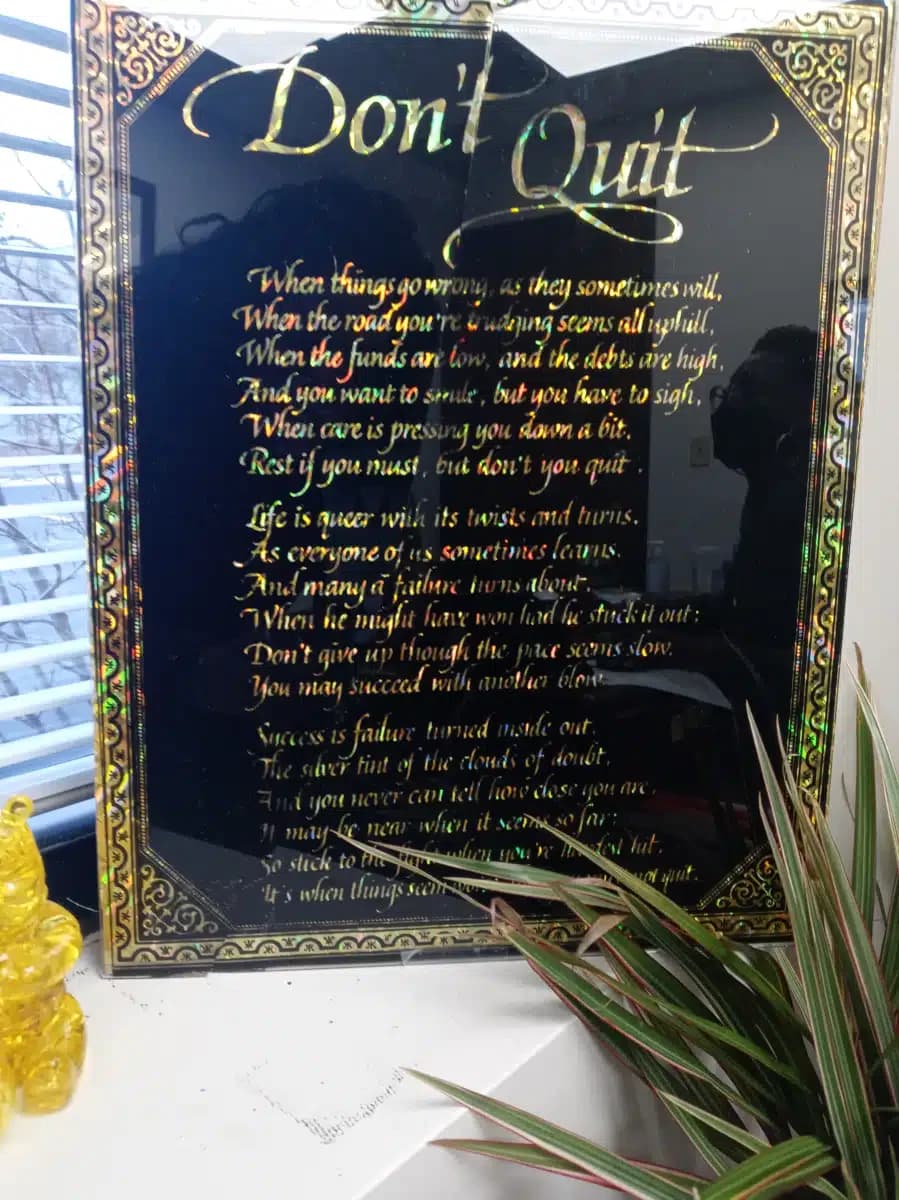 Don't Quit
When things go wrong, as they sometimes will,
When the road you're trudging seems all uphill,
When the funds are low, and the debts are high,
And you want to smile, but you have to sigh,
When care is pressing you down a bit,
Rest if you must, but don't you quit.
Life is queer with its twists and turns,
As everyone of us sometimes learns,
And many a failure turns about,
When he might have won had he stuck it out;
Don't give up though the pace seems slow,
You may succeed with another blow.
Success is failure turned inside out,
The silver tint of the clouds of doubt,
And you never can tell how close you are,
It may be near when it seems so far;
So stick to the fight when you're hardest hit,
It's when things seem not quit.